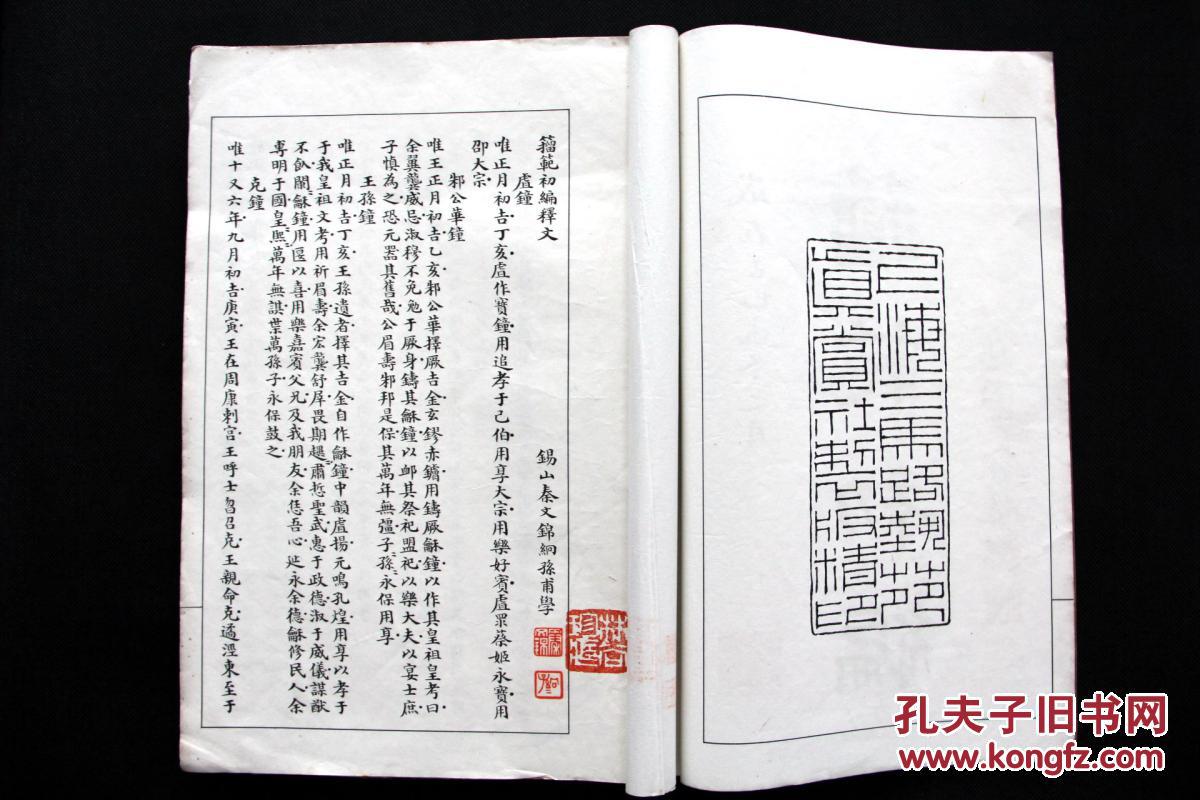 籀範初編釋文
錫山秦文錦絅孫甫學
虘鐘
唯正月初吉丁亥虘作寶鐘用追孝于己伯用享大宗用樂好賓虘眔蔡姬永寶用
邵大宗
邾公華鐘
唯王正月初吉乙亥邾公華擇厥吉金玄鏐赤鏞用鑄厥龢鐘以作其皇祖皇考曰
余翼龔威忌淑穆不免勉于厥身鑄其龢鐘以卹其祭祀盟祀以樂大夫以宴士庶
子慎為之恐元器其舊哉公眉壽邾邦是保其萬年無彊子孫永保用享
王孫鐘
唯正月初吉丁亥王孫遺者擇其吉金自作龢鐘中韻虘揚元鳴孔煌用享以孝于
于我皇祖文考用祈眉壽余宏龔舒屖畏期趩肅悊聖武惠于政德淑于威儀謀猷
不飤闌龢鐘用匽以喜用樂嘉賓父兄及我朋友余恁吾心延永余德龢修民人余
專明于國皇熙萬年無諆葉萬孫子永保鼓之
克鐘
唯十又六年九月初吉庚寅王在周康剌宮王呼士曶召克王親命克遹涇東至于
上海三馬路望平街
真賞社製版精印
孔夫子旧书网
www.kongfz.com